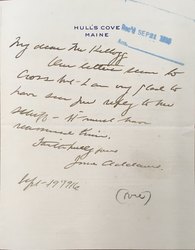 HULL'S COVE
MAINE
Rec'd SEP 21 1916
My dear Mr. Kellogg
Our letters seem to
cross but I am very glad to
have seen your reply to the
- It must have
reassured him.
Faithfully yours
Jane Addams
Sept - 19" 1916